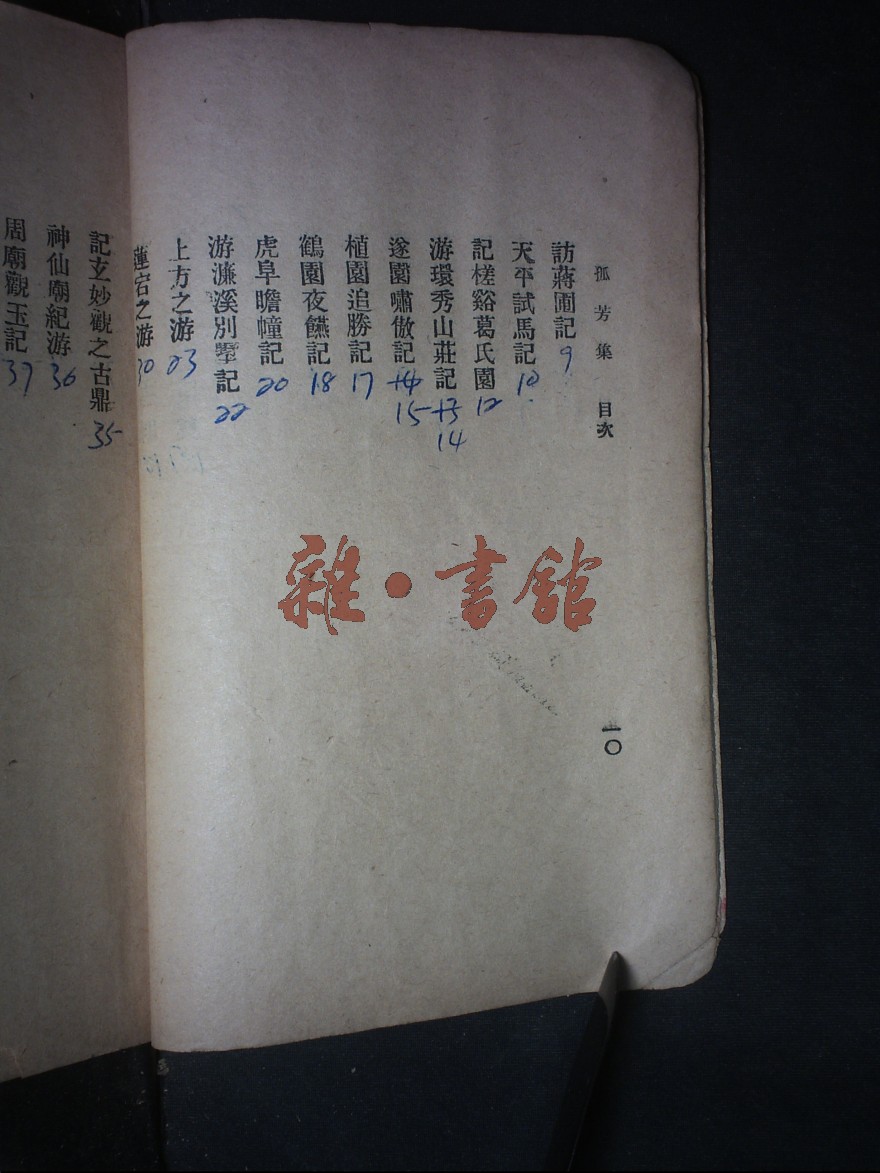 孤芳集 目次
一〇
訪蔣圃記 9
天平試馬記 10
記槎谿葛氏園 12
游環秀山莊記 13 14
遂園嘯傲記 14 15
植園追勝記 17
鶴園夜讌記 18
虎阜瞻幢記 20
游濂溪別墅記 22
上方之游 23
蓮宕之游 30
記玄妙觀之古鼎 35
神仙廟紀游 36
周廟觀玉記 37
雜·書館